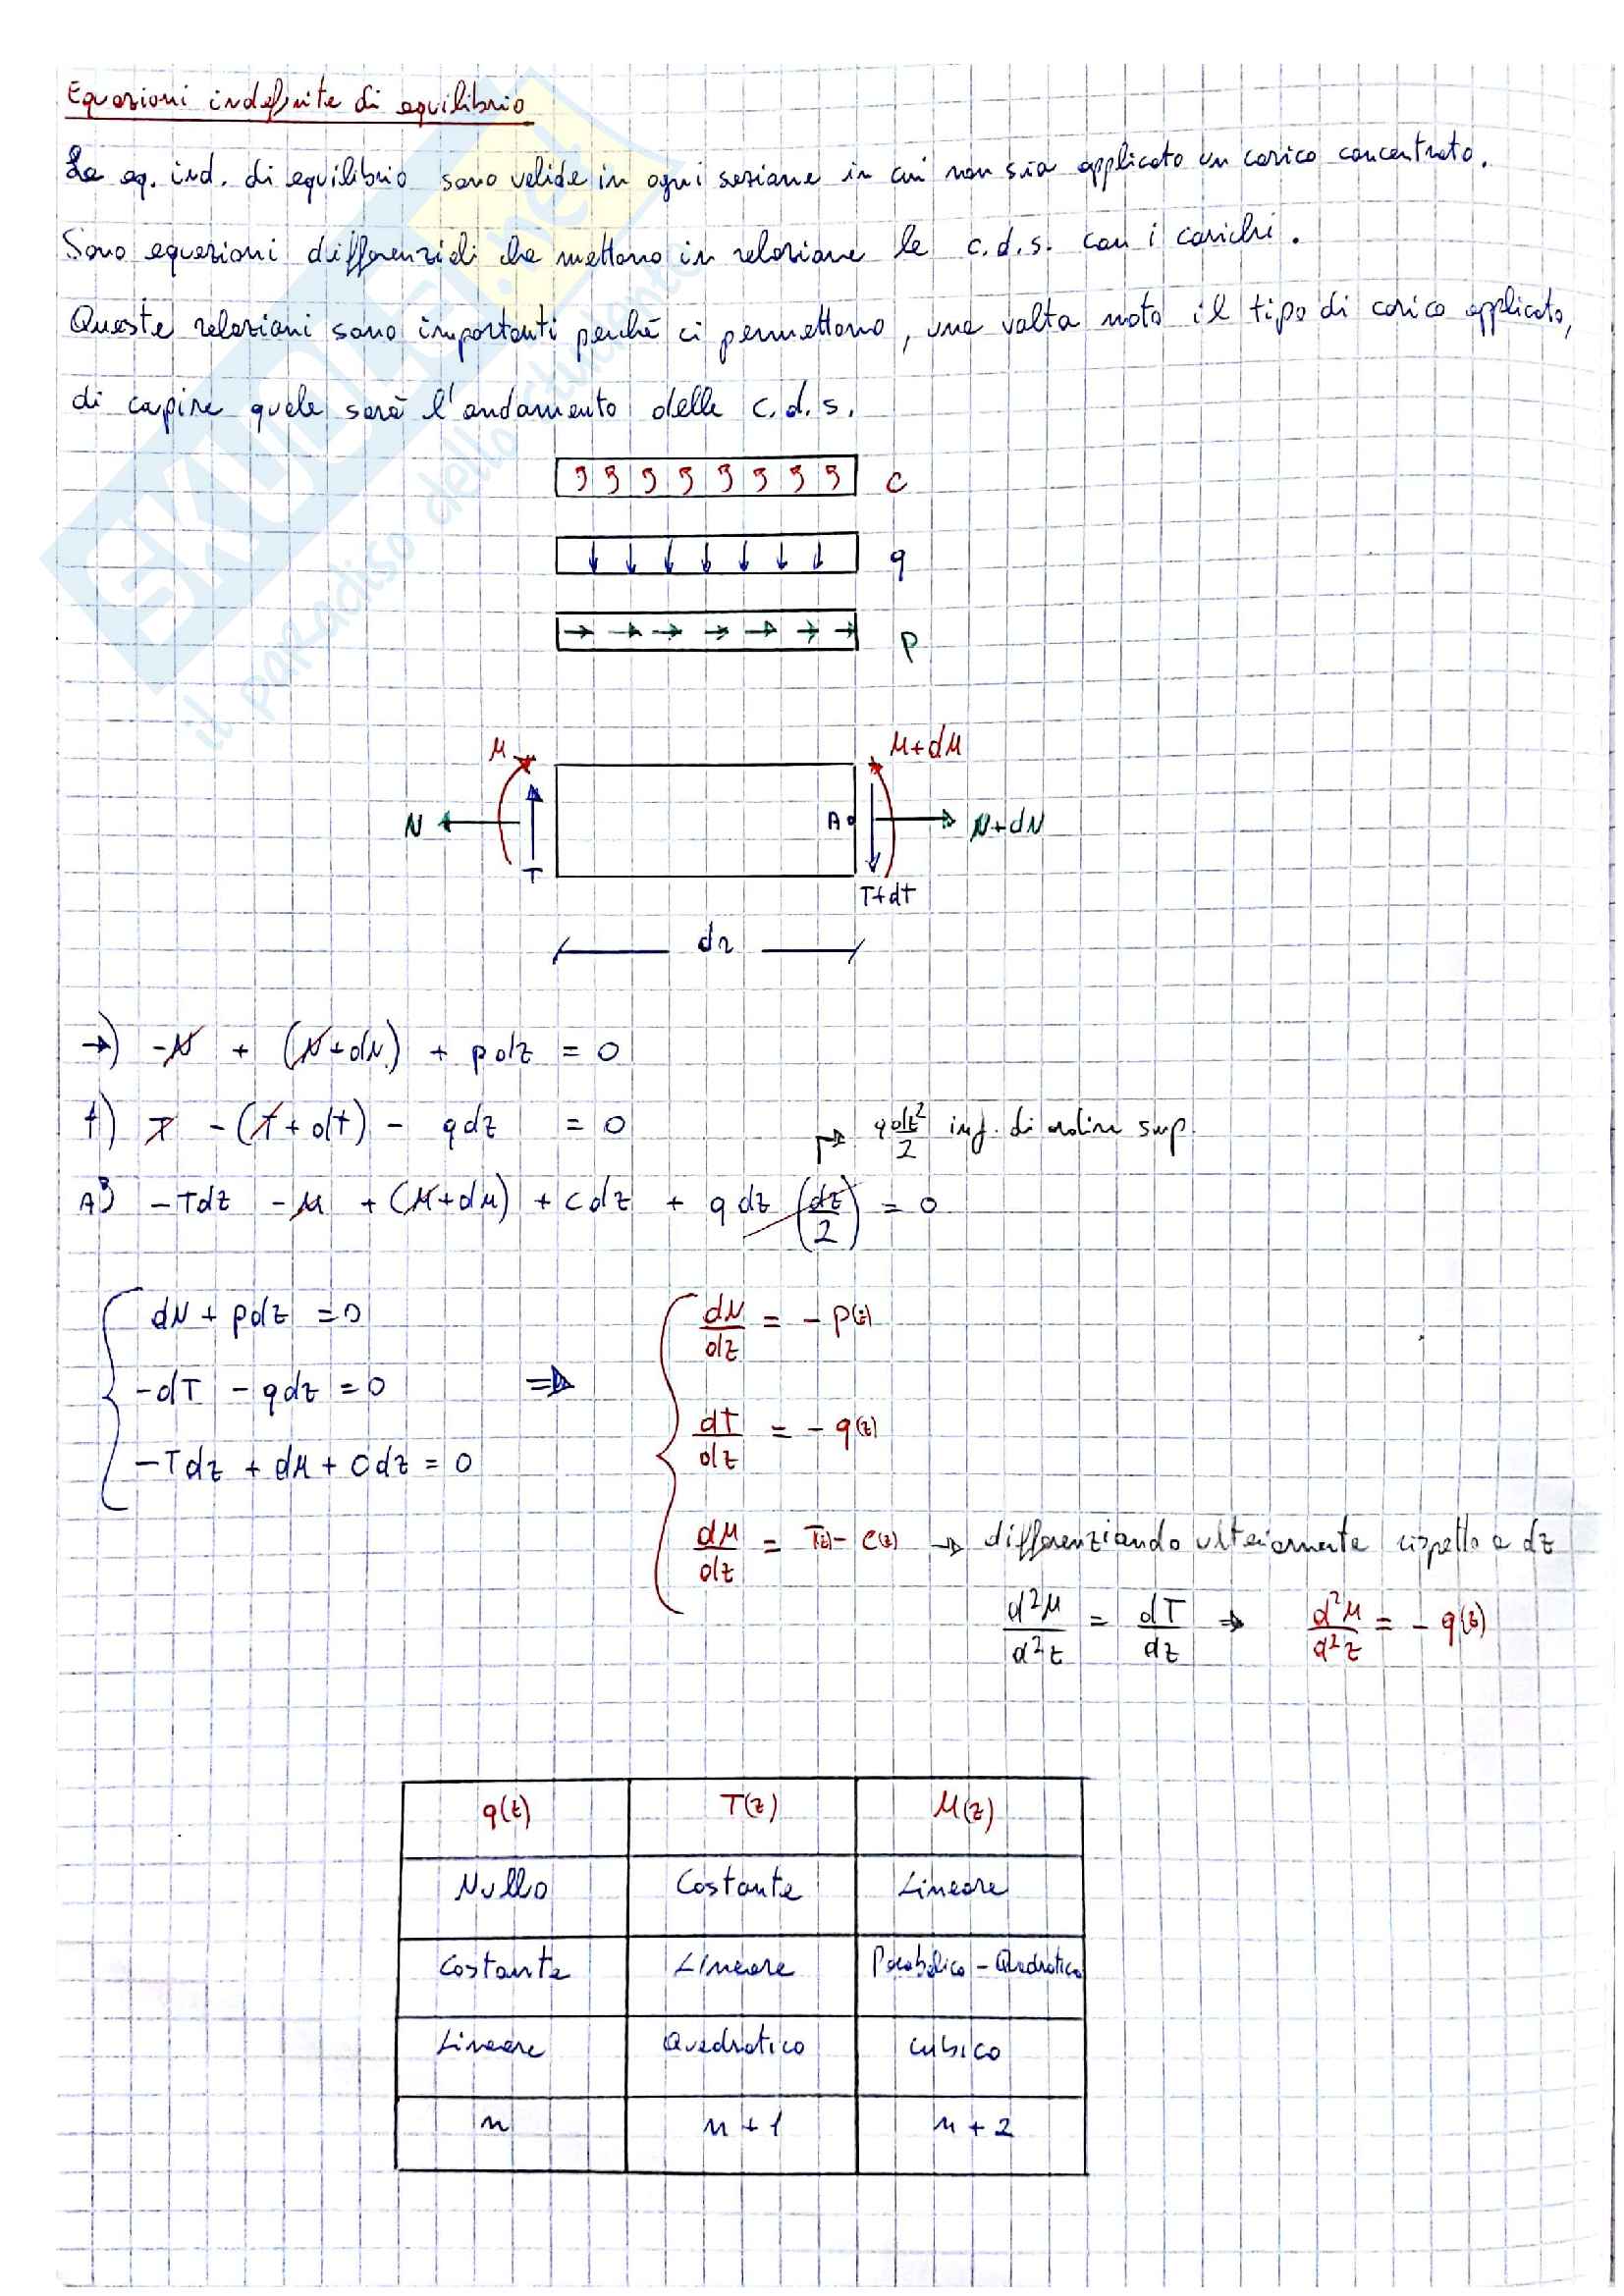 Equazioni indefinite di equilibrio
Le eq. ind. di equilibrio sono valide in ogni sezione in cui non sia applicato un carico concentrato.
Sono equazioni differenziali che mettono in relazione le c.d.s. con i carichi.
Queste relazioni sono importanti perché ci permettono, una volta noto il tipo di carico applicato,
di capire quale sarà l'andamento delle c.d.s.
C
q
P
M M+dM
N A N+dN
T T+dt
dz
→) -N + (N+dN) + pdz = 0
↑) T - (T+dt) - qdz = 0 → qdz²/2 inf. di ordine sup.
A) -Tdz - M + (M+dM) + cdz + qdz (dz/2) = 0
dN + pdz = 0 ⇒ dN/dz = - p(z)
-dT - qdz = 0 dT/dz = - q(z)
-Tdz + dM + Cdz = 0 dM/dz = T(z) - C(z) → differenziando ulteriormente rispetto a dz
d²M/d²z = dT/dz ⇒ d²M/d²z = - q(z)
q(z) T(z) M(z)
Nullo Costante Lineare
Costante Lineare Parabolico - Quadratico
Lineare Quadratico Cubico
n n + 1 n + 2
SKUOLA.net
il paradiso dello studente